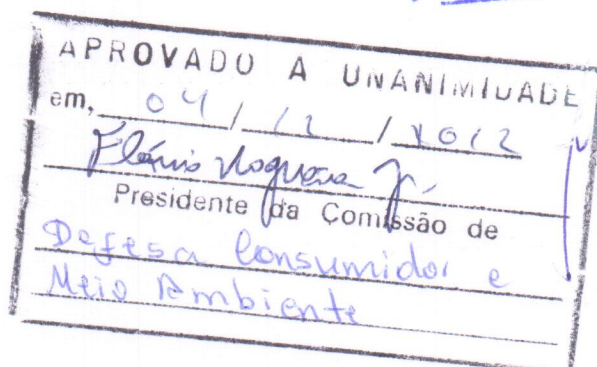 APROVADO A UNANIMIDADE
em, 04 / 12 / 2012
Flávio Nogueira Jr.
Presidente da Comissão de
Defesa Consumidor e
Meio Ambiente